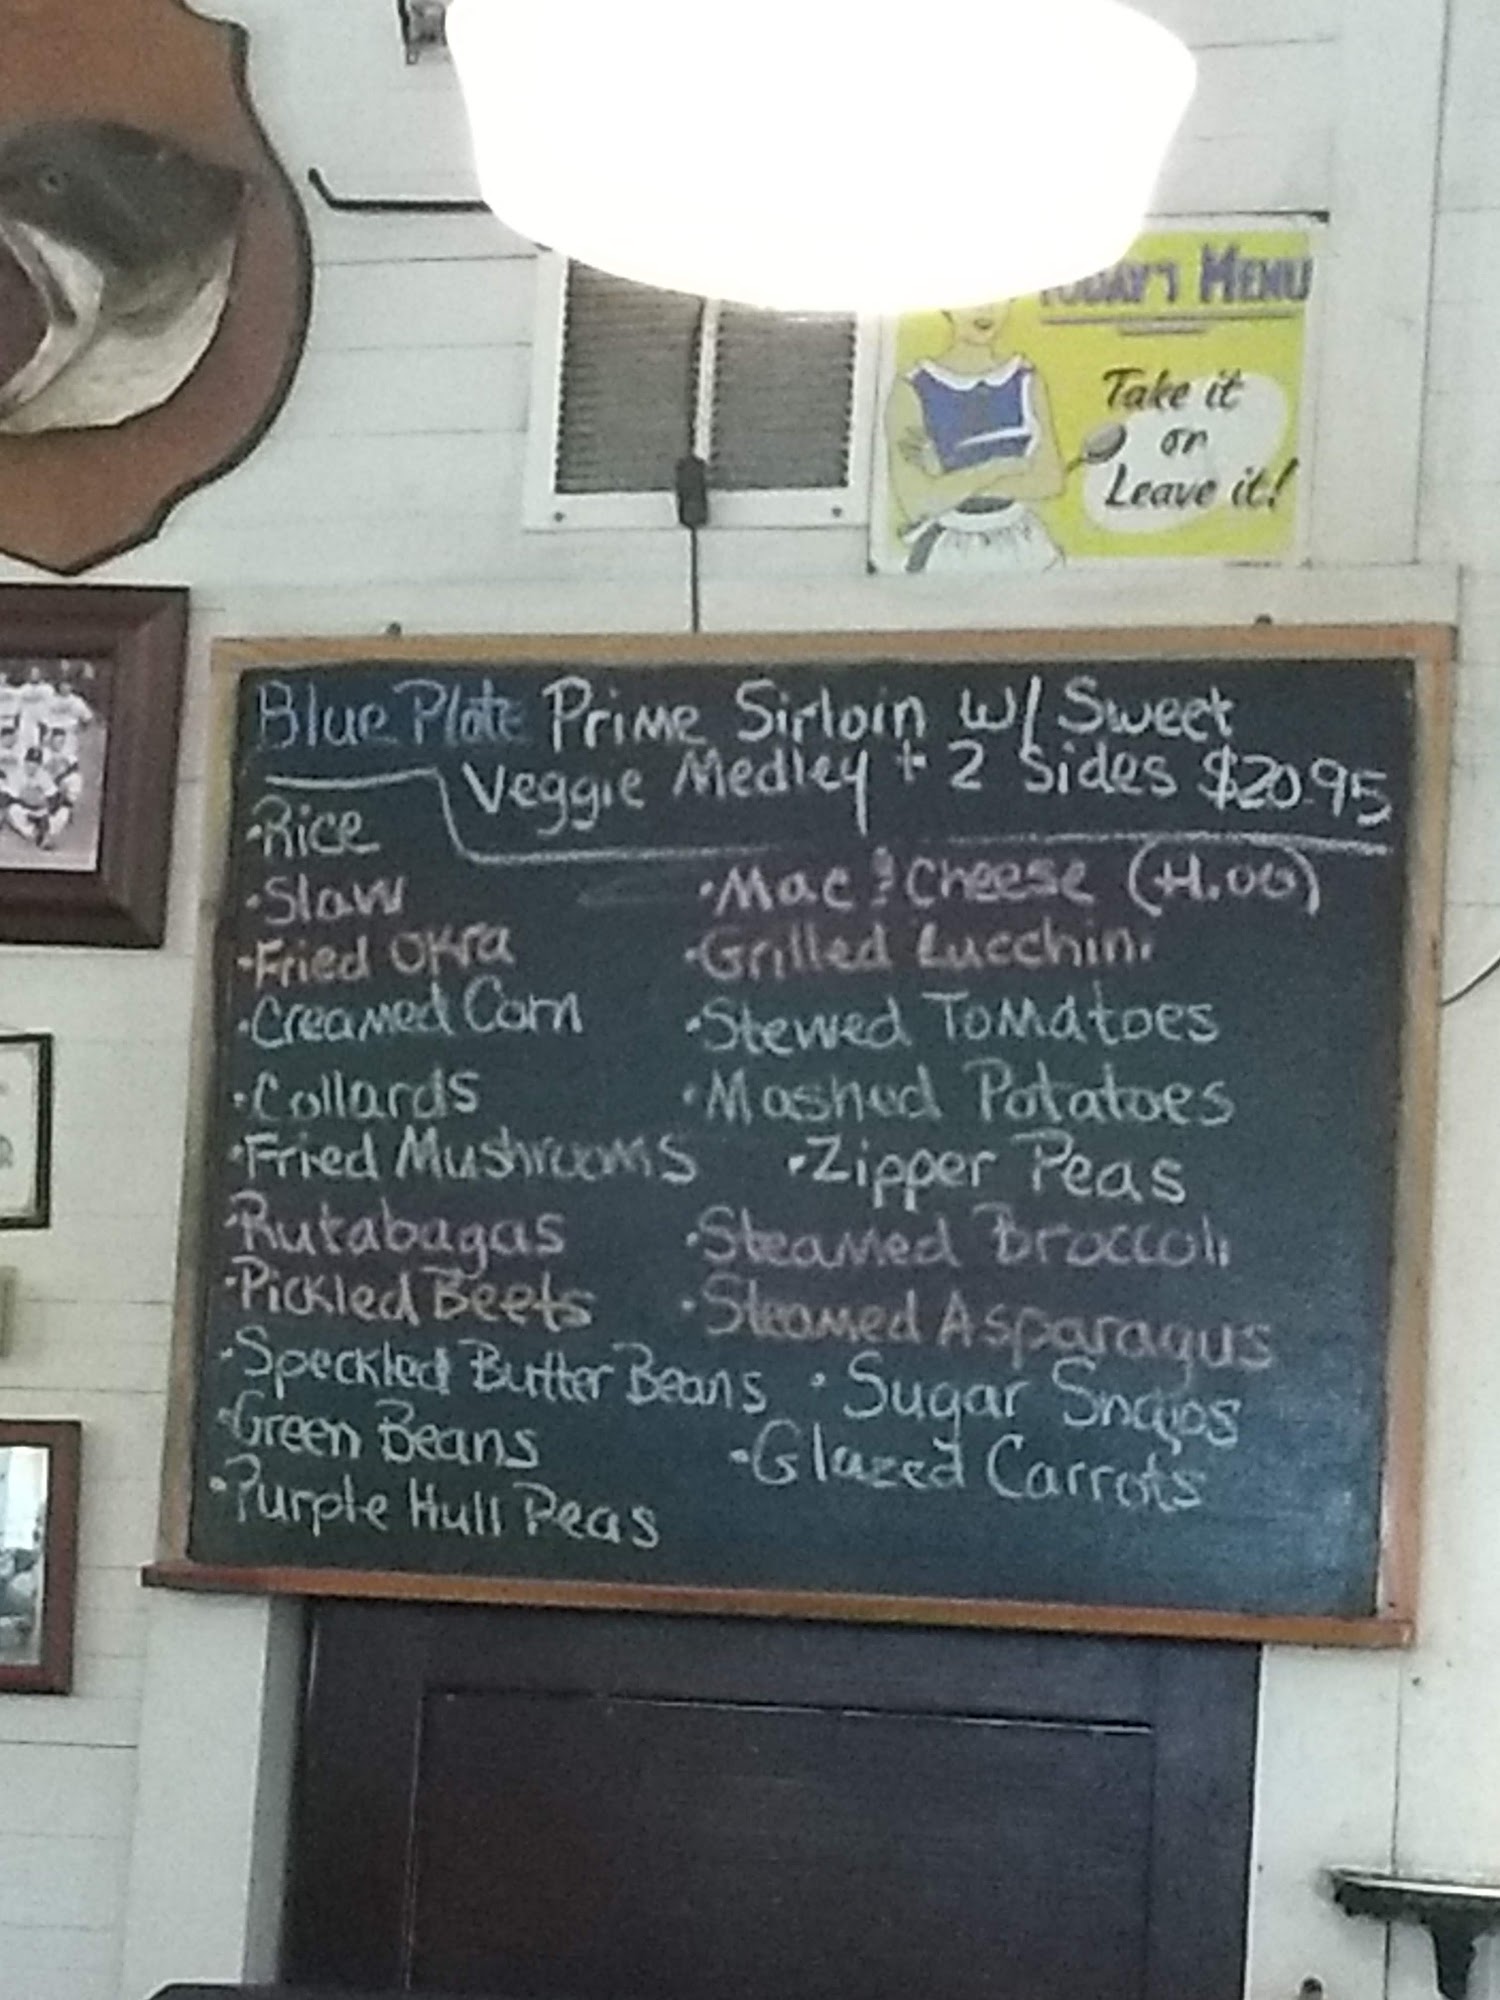 TODAY'S MENU
Take it
or
Leave it!
Blue Plate Prime Sirloin w/ Sweet
Veggie Medley + 2 Sides $20.95
·Rice
·Slaw
·Fried Okra
·Creamed Corn
·Collards
·Fried Mushrooms
·Rutabagas
·Pickled Beets
·Speckled Butter Beans
·Green Beans
·Purple Hull Peas
·Mac & Cheese (+1.00)
·Grilled Zucchini
·Stewed Tomatoes
·Mashed Potatoes
·Zipper Peas
·Steamed Broccoli
·Steamed Asparagus
·Sugar Snaps
·Glazed Carrots